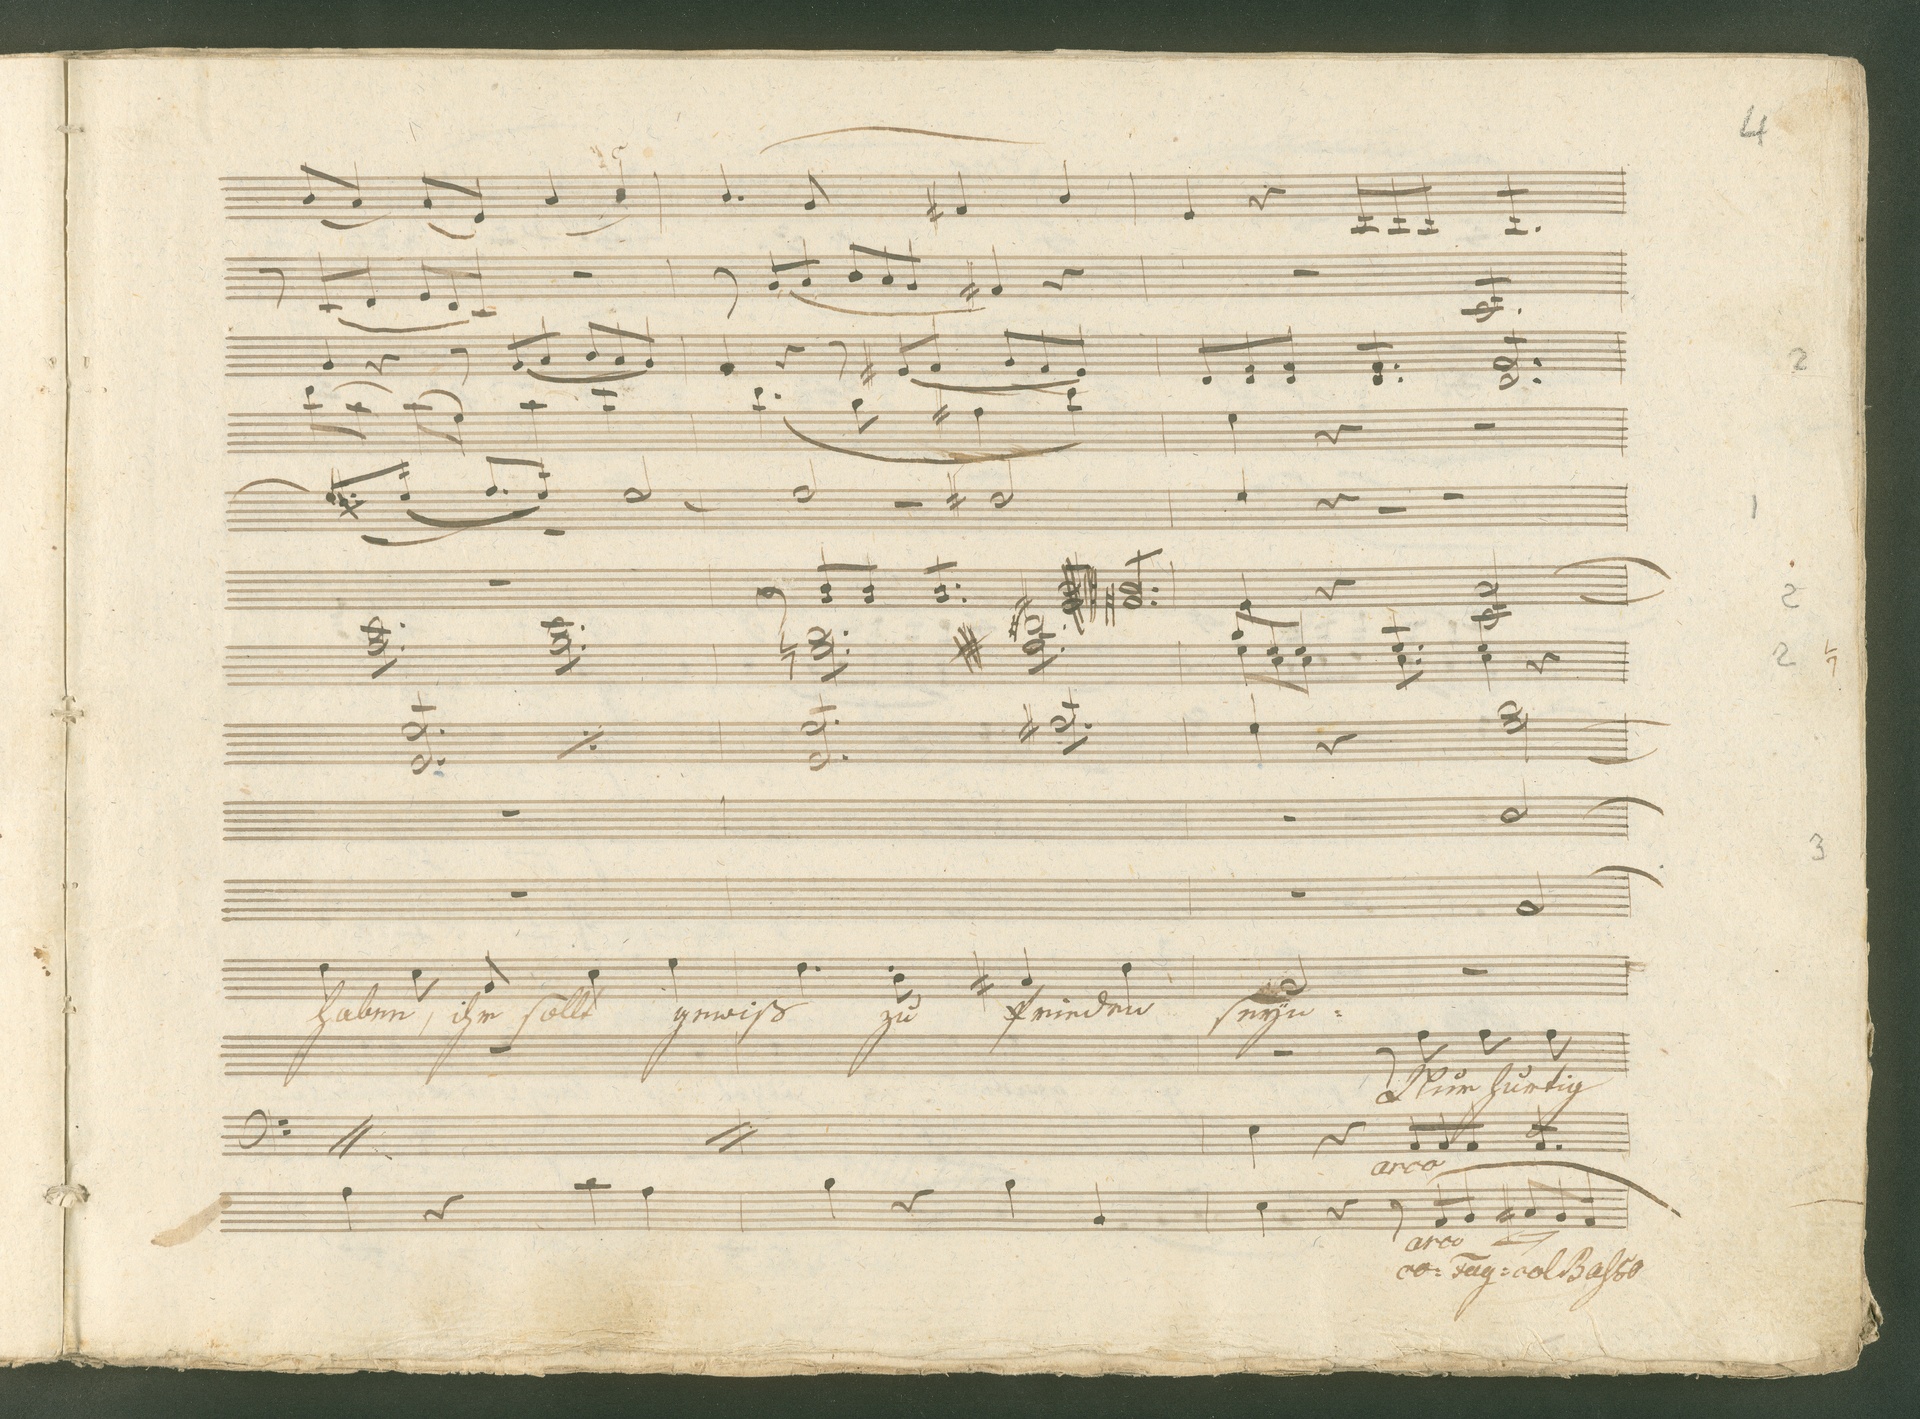 4
2
1
2
2
3
haben, ihr sollt gewiß zu frieden seyn =
Nur hurtig
arco
arco
co: Fag: col Basso